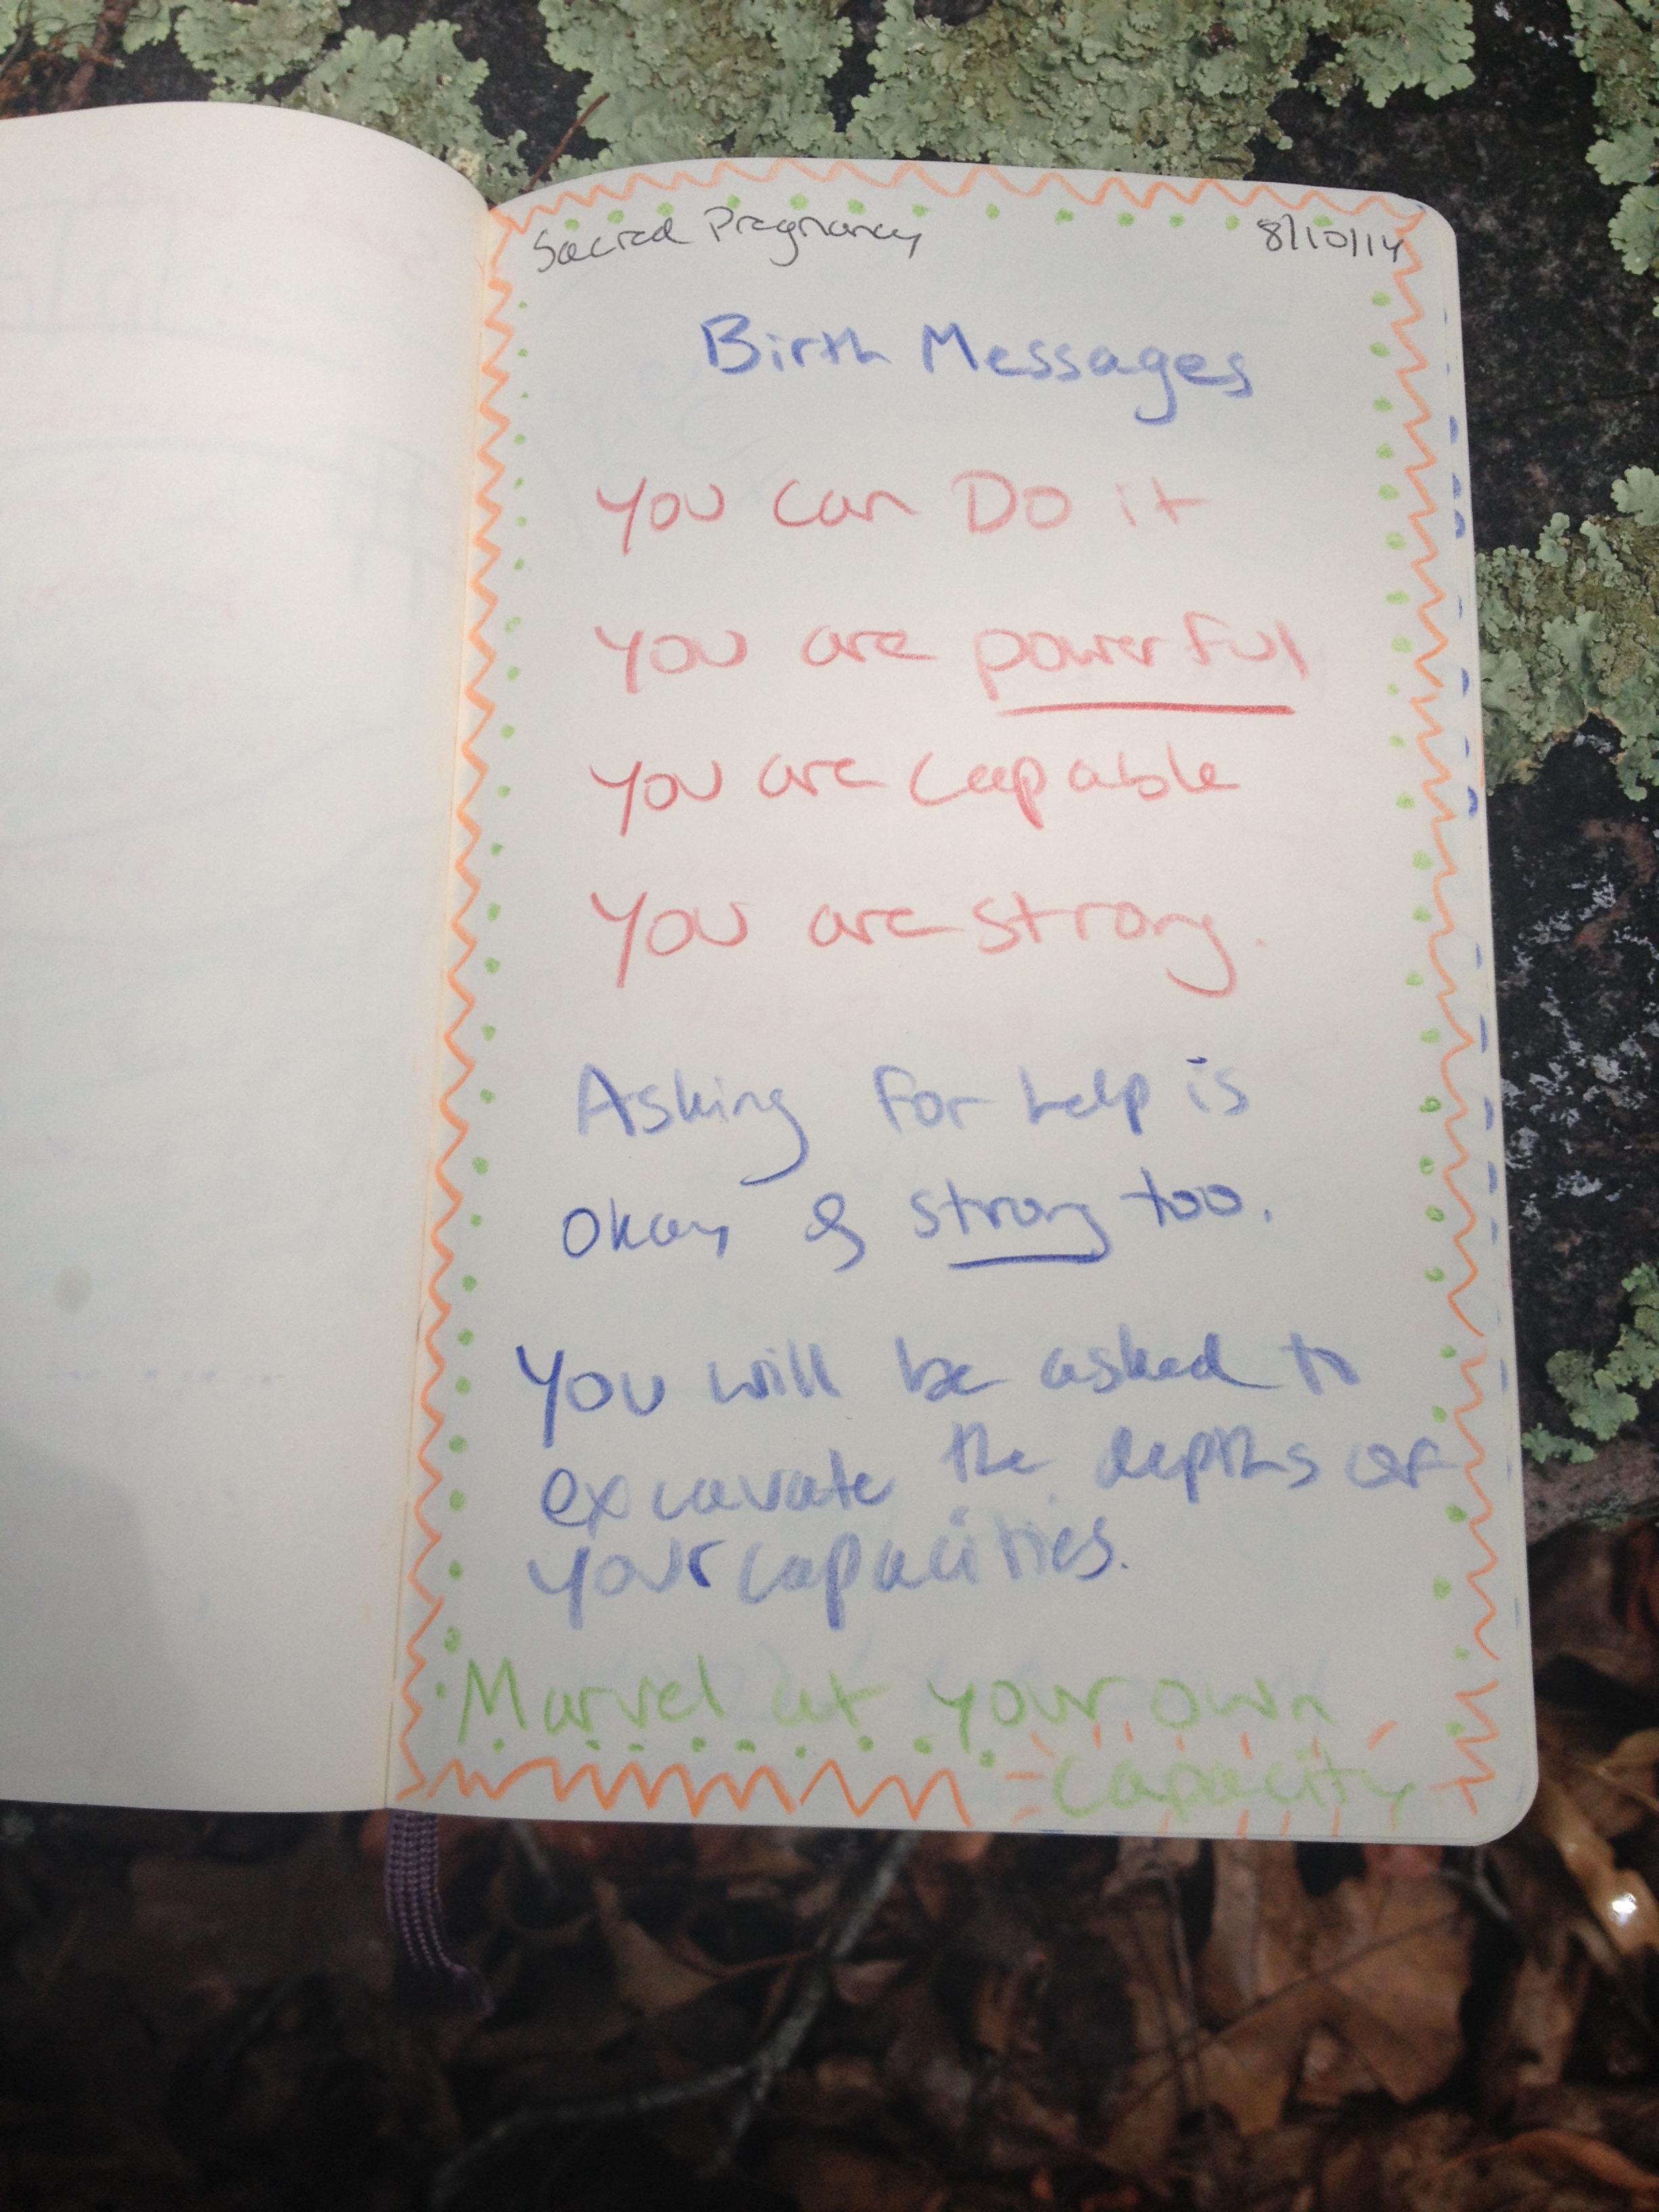 Sacred Pregnancy 8/10/14
Birth Messages
You can Do it
You are powerful
You are capable
You are strong.
Asking for help is
okay & strong too.
You will be asked to
excavate the depths of
your capacities.
Marvel at your own
capacity